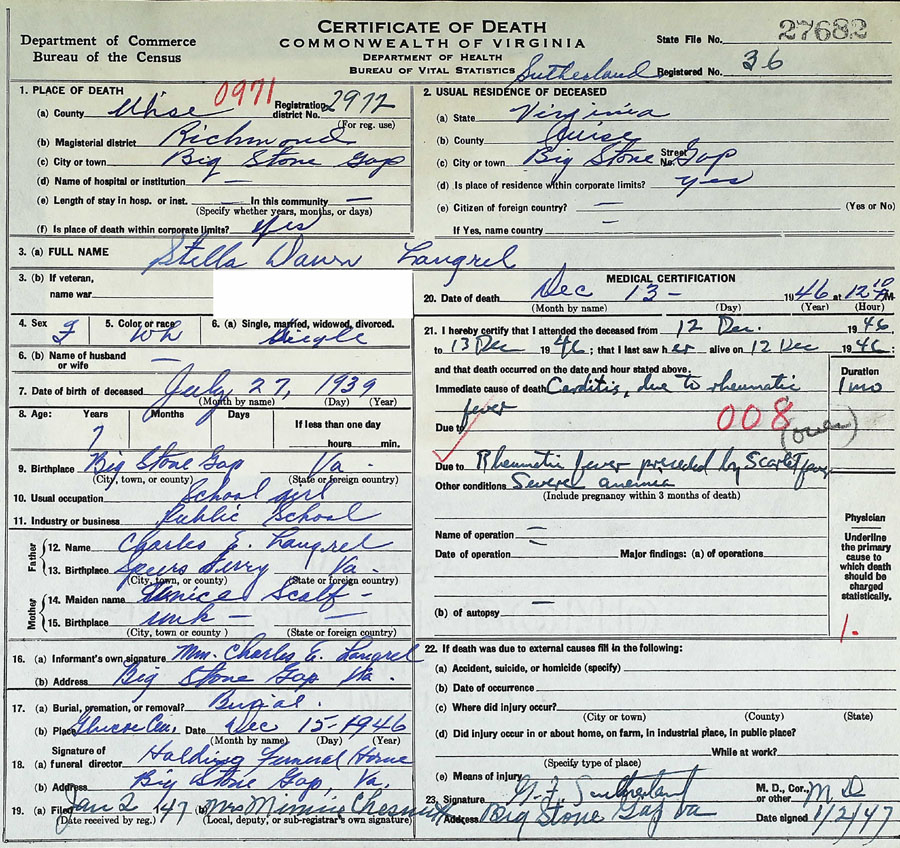 CERTIFICATE OF DEATH
COMMONWEALTH OF VIRGINIA
DEPARTMENT OF HEALTH
BUREAU OF VITAL STATISTICS
Department of Commerce
Bureau of the Census
State File No. 27682
Sutherland Registered No. 36
1. PLACE OF DEATH
0971
(a) County Wise Registration district No. 2977
(For reg. use)
(b) Magisterial district Richmond
(c) City or town Big Stone Gap
(d) Name of hospital or institution —
(e) Length of stay in hosp. or inst. — In this community —
(Specify whether years, months, or days)
(f) Is place of death within corporate limits? yes
2. USUAL RESIDENCE OF DECEASED
(a) State Virginia
(b) County Wise
(c) City or town Big Stone Gap Street No.
(d) Is place of residence within corporate limits? yes
(e) Citizen of foreign country? — (Yes or No)
If Yes, name country —
3. (a) FULL NAME Stella Dawn Langrel
3. (b) If veteran,
name war
4. Sex F 5. Color or race Wh 6. (a) Single, married, widowed, divorced. Single
6. (b) Name of husband or wife —
7. Date of birth of deceased July 27, 1939
(Month by name) (Day) (Year)
8. Age: Years Months Days If less than one day
7 hours min.
9. Birthplace Big Stone Gap Va.
(City, town, or county) (State or foreign country)
10. Usual occupation School girl
11. Industry or business Public School
Father
12. Name Charles E. Langrel
13. Birthplace Speers Ferry Va.
(City, town, or county) (State or foreign country)
Mother
14. Maiden name Eunice Scalf -
15. Birthplace unk — —
(City, town or county) (State or foreign country)
16. (a) Informant's own signature Mrs. Charles E. Langrel
(b) Address Big Stone Gap Va.
17. (a) Burial, cremation, or removal? Burial.
(b) Place Glencoe Cem. Date Dec 15-1946
(Month by name) (Day) (Year)
18. (a) Signature of funeral director Holding Funeral Home
(b) Address Big Stone Gap, Va.
19. (a) Filed Jan 2 '47 (b) Mrs Minnie
(Date received by reg.) (Local, deputy, or sub-registrar's own signature)
MEDICAL CERTIFICATION
20. Date of death Dec 13 - 1946 at 12 10 AM.
(Month by name) (Day) (Year) (Hour)
21. I hereby certify that I attended the deceased from 12 Dec. 1946
to 13 Dec 1946; that I last saw her alive on 12 Dec 1946;
and that death occurred on the date and hour stated above.
Duration
Immediate cause of death Carditis, due to rheumatic 1 mo
fever
Due to 008 (over)
Due to Rheumatic fever preceded by Scarlet fever
Other conditions Severe anemia
(Include pregnancy within 3 months of death)
Name of operation —
Date of operation — Major findings: (a) of operations
(b) of autopsy —
Physician
Underline the primary cause to which death should be charged statistically.
1.
22. If death was due to external causes fill in the following:
(a) Accident, suicide, or homicide (specify)
(b) Date of occurrence
(c) Where did injury occur?
(City or town) (County) (State)
(d) Did injury occur in or about home, on farm, in industrial place, in public place?
While at work?
(Specify type of place)
(e) Means of injury
23. Signature Sutherland M. D., Cor., or other M D
Address Big Stone Gap Va Date signed 1/2/47